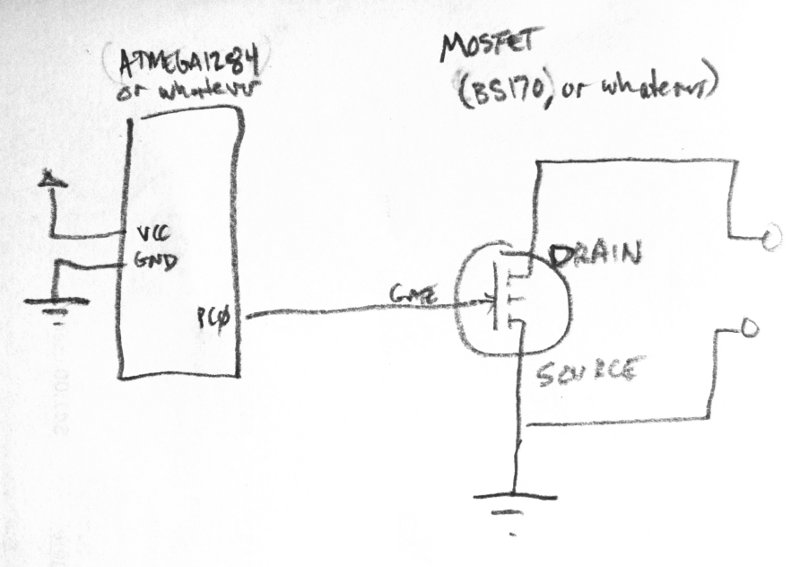 (ATMEGA1284)
or whatever
MOSFET
(BS170, or whatever)
VCC
GND
PC0
GATE
DRAIN
SOURCE